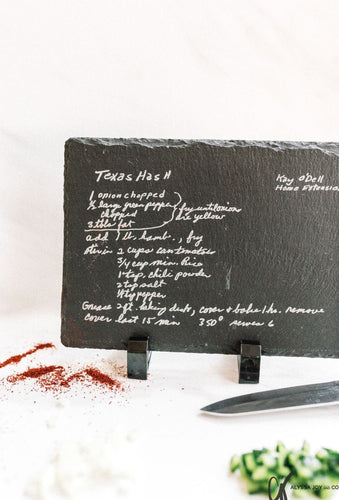 Texas Hash
Kay O'Dell
Home Extension
1 onion chopped
½ large green pepper
chopped
3 tbls fat
fry until onion
are yellow
add 1 lb. hamb., fry
Stir in 2 cups can tomatoes
3/4 cup min. Rice
1 tsp. chili powder
2 tsp salt
1/4 tsp pepper
Grease 2 qt. baking dish, cover & bake 1 hr. remove
cover last 15 min 350° serves 6
ALYSSA JOY AND CO